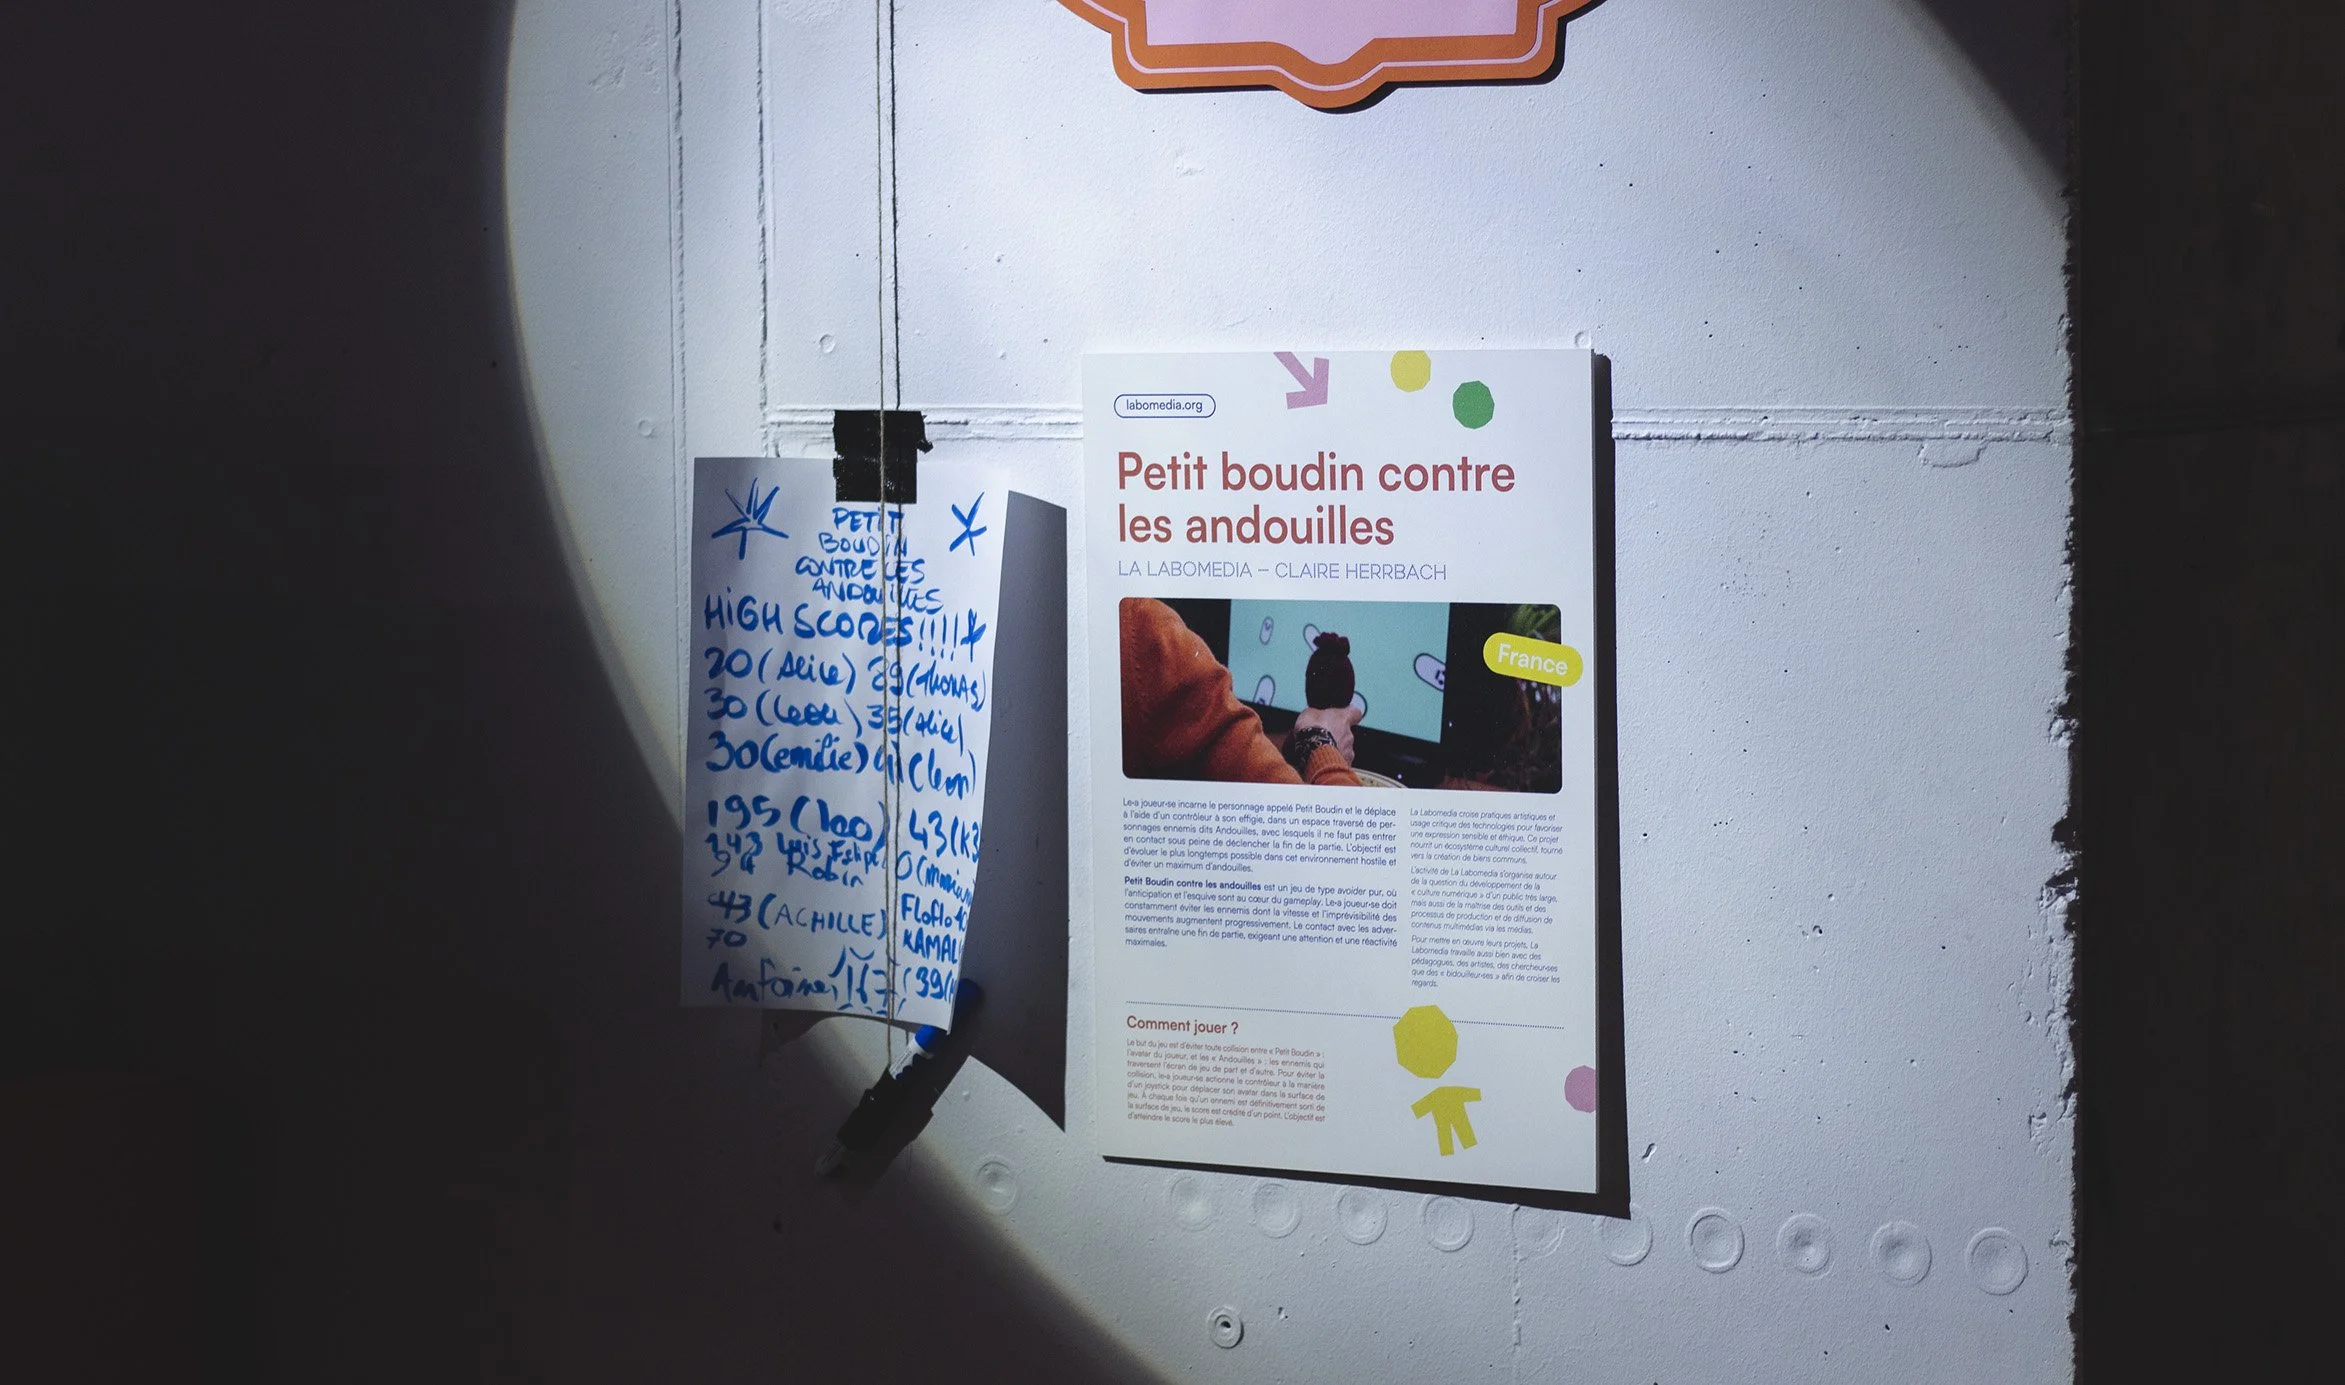 PETIT
BOUDIN
CONTRE LES
ANDOUILLES
HIGH SCORES!!!!
20 (Alice) 29 (THOMAS)
30 (Leon) 35 (Alice)
30 (emilie) 41 (Leon)
195 (leo) 43 (K3
143 Luis Felipe
94 Robin
0 (Miriam
43 (ACHILLE)
Floflo
70
KAMAL
Antoine, 167 39 (
labomedia.org
Petit boudin contre
les andouilles
LA LABOMEDIA – CLAIRE HERRBACH
France
Le·a joueur·se incarne le personnage appelé Petit Boudin et le déplace
à l'aide d'un contrôleur à son effigie, dans un espace traversé de per-
sonnages ennemis dits Andouilles, avec lesquels il ne faut pas entrer
en contact sous peine de déclencher la fin de la partie. L'objectif est
d'évoluer le plus longtemps possible dans cet environnement hostile et
d'éviter un maximum d'andouilles.
Petit Boudin contre les andouilles est un jeu de type avoider pur, où
l'anticipation et l'esquive sont au cœur du gameplay. Le·a joueur·se doit
constamment éviter les ennemis dont la vitesse et l'imprévisibilité des
mouvements augmentent progressivement. Le contact avec les adver-
saires entraîne une fin de partie, exigeant une attention et une réactivité
maximales.
La Labomedia croise pratiques artistiques et
usage critique des technologies pour favoriser
une expression sensible et éthique. Ce projet
nourrit un écosystème culturel collectif, tourné
vers la création de biens communs.
L'activité de La Labomedia s'organise autour
de la question du développement de la
« culture numérique » d'un public très large,
mais aussi de la maîtrise des outils et des
processus de production et de diffusion de
contenus multimédias via les médias.
Pour mettre en œuvre leurs projets, La
Labomedia travaille aussi bien avec des
pédagogues, des artistes, des chercheur·ses
que des « bidouilleur·ses » afin de croiser les
regards.
Comment jouer ?
Le but du jeu est d'éviter toute collision entre « Petit Boudin » :
l'avatar du joueur, et les « Andouilles » : les ennemis qui
traversent l'écran de jeu de part et d'autre. Pour éviter la
collision, le·a joueur·se actionne le contrôleur à la manière
d'un joystick pour déplacer son avatar dans la surface de
jeu. À chaque fois qu'un ennemi est définitivement sorti de
la surface de jeu, le score est crédité d'un point. L'objectif est
d'atteindre le score le plus élevé.